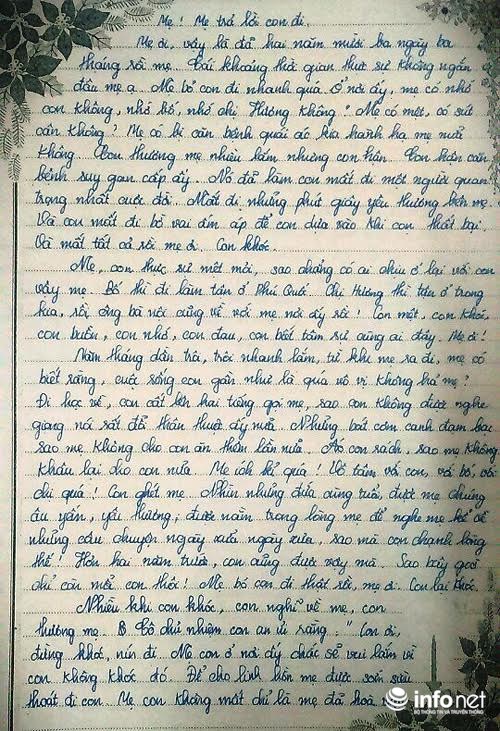 Mẹ! Mẹ trả lời con đi.
Mẹ ơi, vậy là đã hai năm mười ba ngày ba
tháng rồi mẹ. Cái khoảng thời gian thực sự không ngắn
đâu mẹ ạ. Mẹ bỏ con đi nhanh quá. Ở nơi ấy, mẹ có nhớ
con không, nhớ bố, nhớ chị Hương không? Mẹ có mệt, có sút
cân không? Mẹ có bị căn bệnh quái ác kia hành hạ mẹ nữa
không. Con thương mẹ nhiều lắm nhưng con hận. Con hận căn
bệnh suy gan cấp ấy. Nó đã làm con mất đi một người quan
trọng nhất cuộc đời. Mất đi những phút giây yêu thương bên mẹ.
Và con mất đi bờ vai ấm áp để con dựa vào khi con thất bại.
Và mất tất cả rồi mẹ ơi. Con khóc.
Mẹ, con thực sự mệt mỏi, sao chẳng có ai chịu ở lại với con
vậy mẹ. Bố thì đi làm tận ở Phú Quốc. Chị Hương thì tận ở trong
kia, rồi ông bà nội cũng về với mẹ nơi ấy rồi! Con mệt, con khóc,
con buồn, con nhớ, con đau, con biết tâm sự cùng ai đây. Mẹ ơi!
Năm tháng dần trôi, trôi nhanh lắm, từ khi mẹ ra đi, mẹ có
biết rằng, cuộc sống con gần như là quá vô vị không hả mẹ?
Đi học về, con cất lên hai tiếng gọi mẹ, sao con không được nghe
giọng nói rất đỗi thân thuộc ấy nữa. Những bát cơm canh đạm bạc
sao mẹ không cho con ăn thêm lần nữa. Áo con rách, sao mẹ không
khâu lại cho con nữa. Mẹ ích kỉ quá! Vô tâm với con, với bố, với
chị quá! Con ghét mẹ. Nhìn những đứa cùng tuổi, được mẹ chúng
âu yếm, yêu thương, được nằm trong lòng mẹ để nghe mẹ kể về
những câu chuyện ngày xửa ngày xưa, sao mà con chạnh lòng
thế! Hơn hai năm trước, con cũng được vậy mà. Sao bây giờ
chỉ còn mỗi con thôi! Mẹ bỏ con đi thật rồi, mẹ ơi. Con lại khóc.
Nhiều khi con khóc, con nghĩ về mẹ, con
thương mẹ. Cô chủ nhiệm con an ủi rằng: "Con ơi,
đừng khóc, nín đi. Mẹ con ở nơi ấy chắc sẽ vui lắm vì
con không khóc đó. Để cho linh hồn mẹ được siêu
thoát đi con. Mẹ con không mất chỉ là mẹ đã hoá
infonet
BỘ THÔNG TIN VÀ TRUYỀN THÔNG